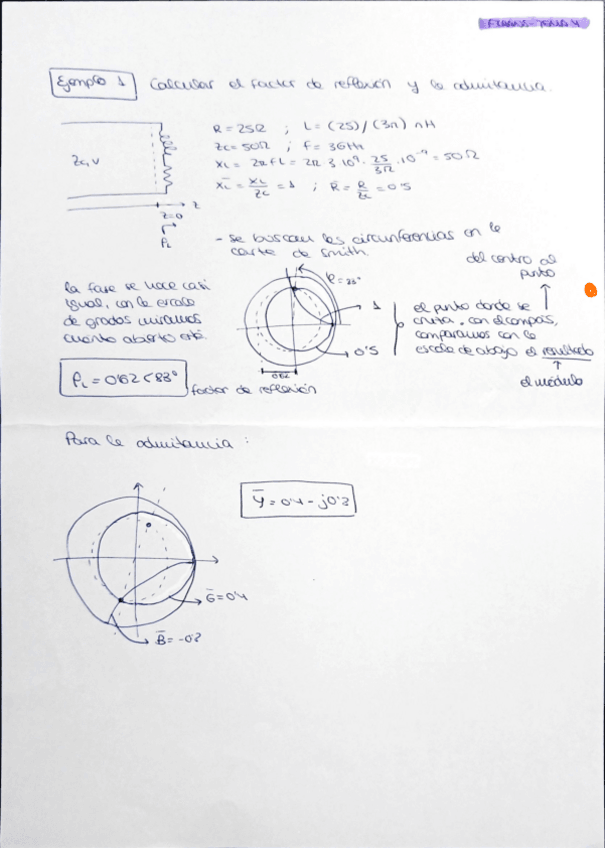 EXAMS-TEMA 4
Ejemplo 1 Calcular el factor de reflexión y la admitancia.
R = 25Ω ; L = (25)/(3π) nH
Zc = 50Ω ; f = 3GHz
XL = 2πfL = 2π·3·10⁹·25/3π·10⁻⁹ = 50Ω
X̄L = XL/Zc = 1 ; R̄ = R/Zc = 0'5
Zc, v
z
z=0
ρL
- Se buscan las circunferencias en la
carta de Smith.
del centro al
punto
la fase se hace casi
igual, con la escala
de grados miramos
cuánto abierto está.
φ = 83°
1
0'5
0'62
el punto donde se
cruza, con el compás,
comparamos con la
escala de abajo el resultado
el módulo
ρL = 0'62 < 83°
factor de reflexión
Para la admitancia :
Ȳ = 0'4 - j0'8
Ḡ = 0'4
B̄ = -0'8